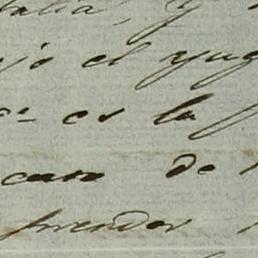 talia, y
ajo el yug
es la
caso de
prender